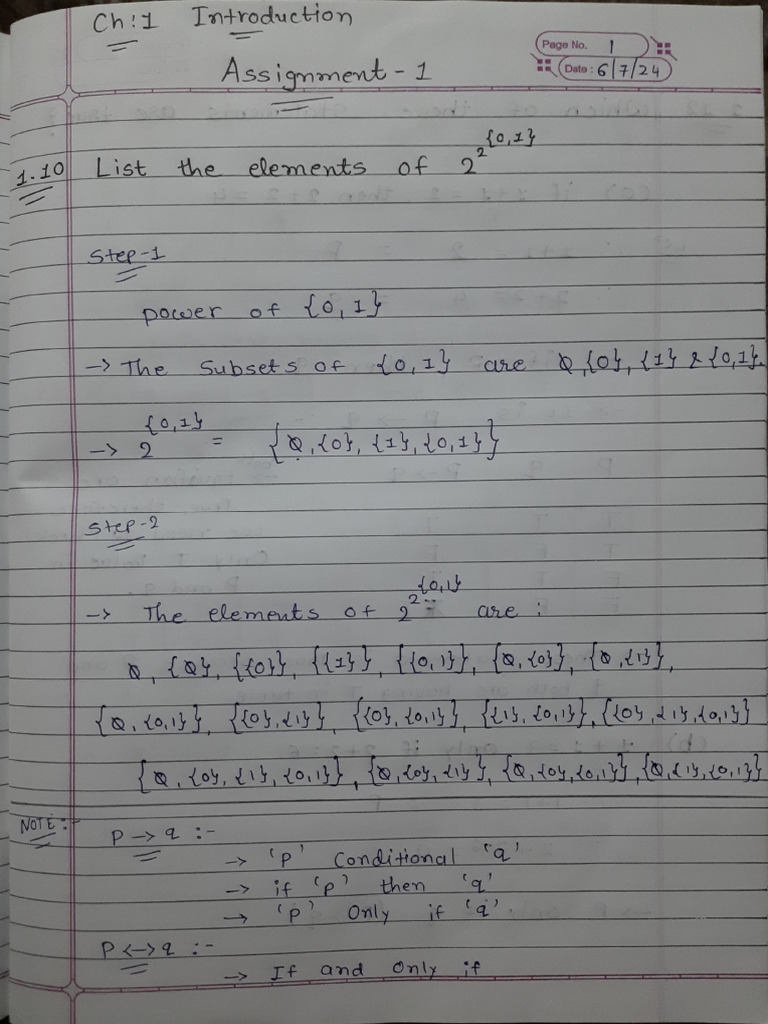 Ch:1 Introduction
Assignment-1
Page No. 1
Date: 6/7/24
1.10 List the elements of 2^2^{0,1}
Step-1
power of {0,1}
→ The Subsets of {0,1} are ∅,{0},{1} & {0,1}.
→ 2^{0,1} = {∅,{0},{1},{0,1}}
Step-2
→ The elements of 2^2^{0,1} are :
∅, {∅}, {{0}}, {{1}}, {{0,1}}, {∅,{0}}, {∅,{1}},
{∅,{0,1}}, {{0},{1}}, {{0},{0,1}}, {{1},{0,1}}, {{0},{1},{0,1}}
{∅,{0},{1},{0,1}}, {∅,{0},{1}}, {∅,{0},{0,1}}, {∅,{1},{0,1}}
NOTE:- P → q :-
→ 'P' Conditional 'q'
→ if 'P' then 'q'
→ 'P' Only if 'q'
P <-> q :-
→ If and Only if